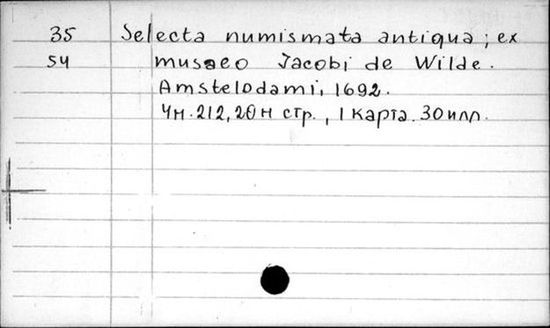 35 Selecta numismata antiqua; ex
54 musaeo Jacobi de Wilde.
Amstelodami, 1692.
4н. 212, 20н стр., 1 карта. 30 илл.